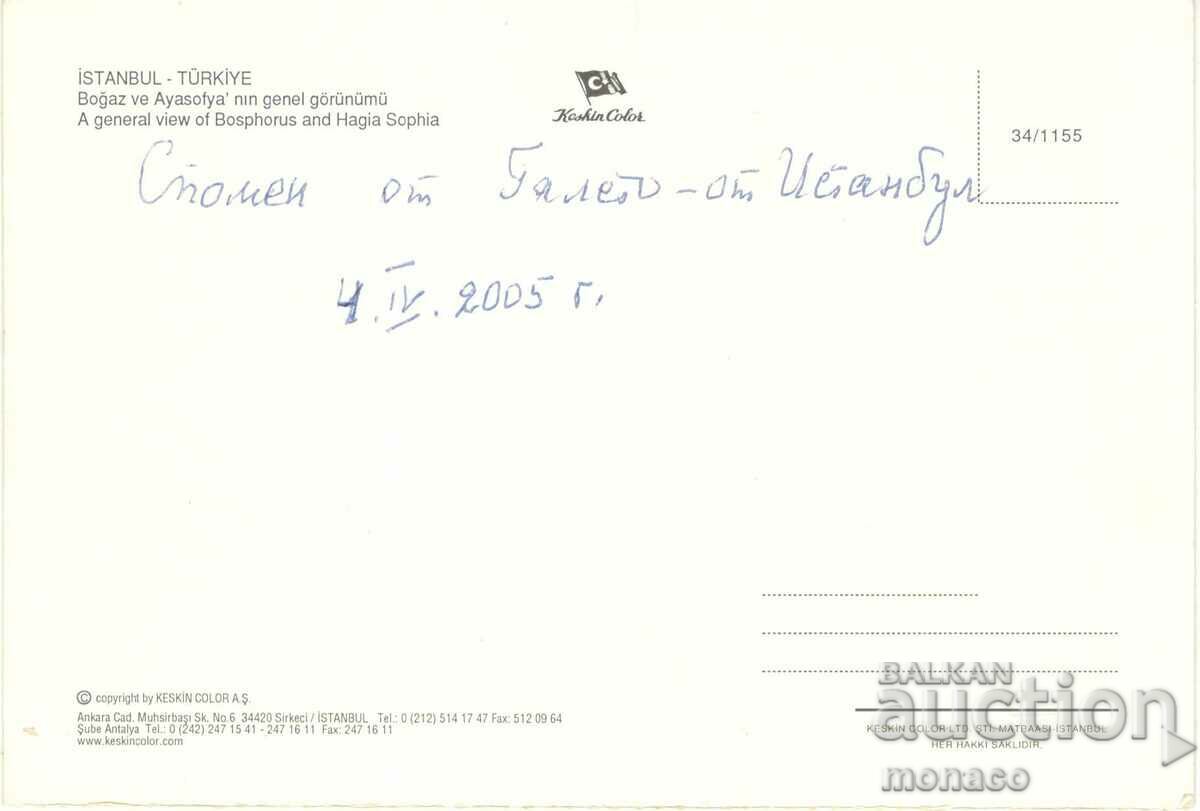 İSTANBUL - TÜRKİYE
Boğaz ve Ayasofya' nın genel görünümü
A general view of Bosphorus and Hagia Sophia
Keskin Color
34/1155
Спомен от Галето - от Истанбул
4. IV. 2005 г.
© copyright by KESKİN COLOR A.Ş.
Ankara Cad. Muhsirbaşı Sk. No.6 34420 Sirkeci / İSTANBUL Tel.: 0 (212) 514 17 47 Fax: 512 09 64
Şube Antalya Tel.: 0 (242) 247 15 41 - 247 16 11 Fax: 247 16 11
www.keskincolor.com
KESKİN COLOR LTD. STİ. MATBAASI-İSTANBUL
HER HAKKI SAKLIDIR.
BALKAN
auction
monaco